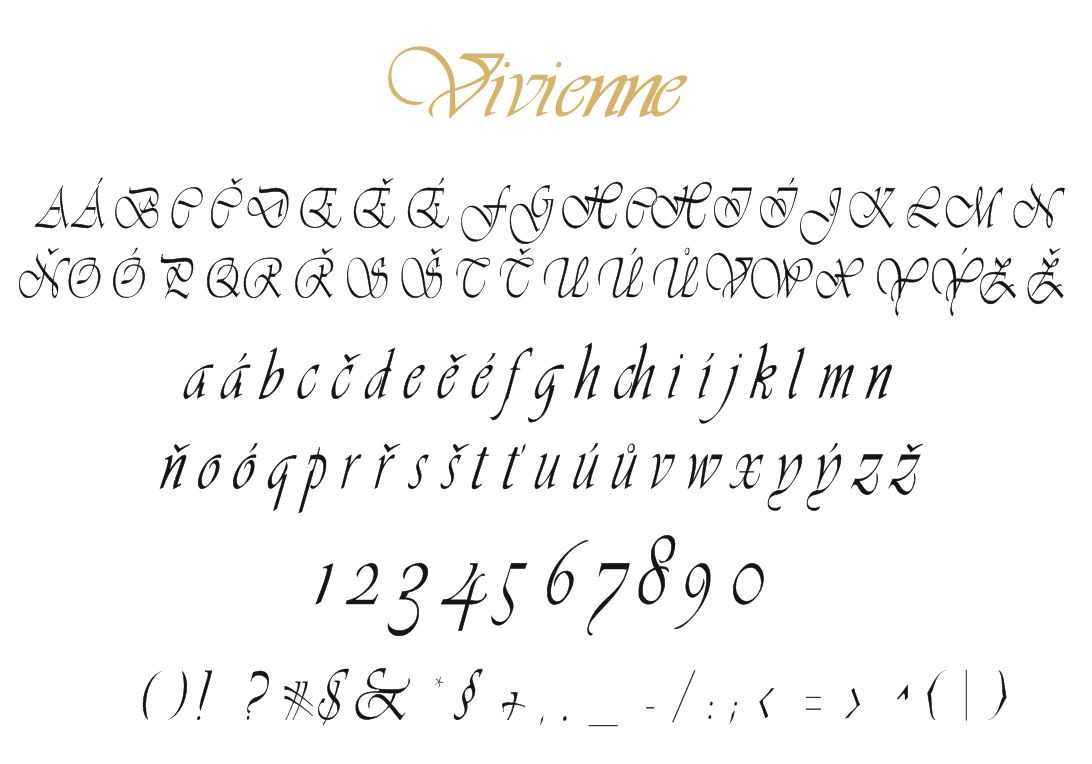 Vivienne
A Á B C Č D E Ě É F G H CH I Í J K L M N
Ň O Ó P Q R Ř S Š T Č U Ú Ů V W X Y Ý Z Ž
a á b c č d e ě é f g h ch i í j k l m n
ň o ó q p r ř s š t ť u ú ů v w x y ý z ž
1 2 3 4 5 6 7 8 9 0
( ) ! ? # $ & * § + , . _ - / : ; < = > ^ { | }